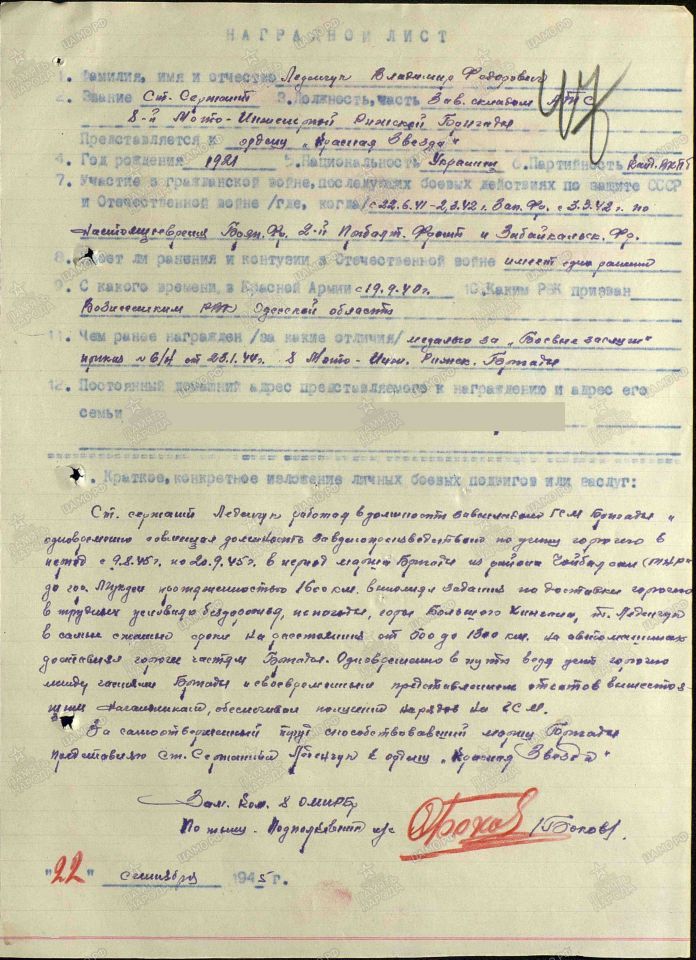 НАГРАДНОЙ ЛИСТ
47
1. Фамилия, имя и отчество Леденчук Владимир Федорович
2. Звание Ст. Сержант 3. Должность, часть Зав. складом АТС
8-й Мото-Инженерной Рижской Бригады
Представляется к ордену „Красная Звезда"
4. Год рождения 1921 5. Национальность Украинец 6. Партийность Канд. ВКПб
7. Участие в гражданской войне, последующих боевых действиях по защите СССР
и Отечественной войне /где, когда/ с 22.6.41-2.3.42 г. Зап. Фр. с 3.3.42 г. по
настоящее время 2-й Прибалт. Фронт и Забайкальск. Фр.
8. Имеет ли ранения и контузии в Отечественной войне имеет одно ранение
9. С какого времени, в Красной Армии с 19.9.40 г. 10. Каким РВК призван
РВК Одесской области
11. Чем ранее награжден /за какие отличия/ медалью за „Боевые заслуги"
приказ № 6/н от 23.1.44 г. 8 Мото-Инж. Рижск. Бригады
12. Постоянный домашний адрес представляемого к награждению и адрес его
семьи
. Краткое, конкретное изложение личных боевых подвигов или заслуг:
Ст. сержант Леденчук работая в должности Бригады и
одновременно должность по учету горючего в
период с 9.8.45 г. по 20.9.45 г. в период марша Бригады из района Чойбалсан (МНР)
до гор. протяженностью 1600 км. выполнял задания по доставке горючего
в трудных условиях бездорожья, непогоды, горы Большого Хингана, т. Леденчук
в самые сжатые сроки на расстояния от 500 до 1300 км. на автомашинах
доставлял горючее частям Бригады. Одновременно в пути ведя учет горючего
между частями Бригады и своевременным представлением отчетов вышестоя
щим начальникам, обеспечивал получение нарядов на ГСМ.
За самоотверженный труд способствовавший маршу Бригады
представляю Ст. Сержанта Леденчук к ордену „Красная Звезда"
Зам. Ком. 8 ОМИРБр
По тылу - Подполковник и/с /Брохов/.
"22" сентября 1945 г.